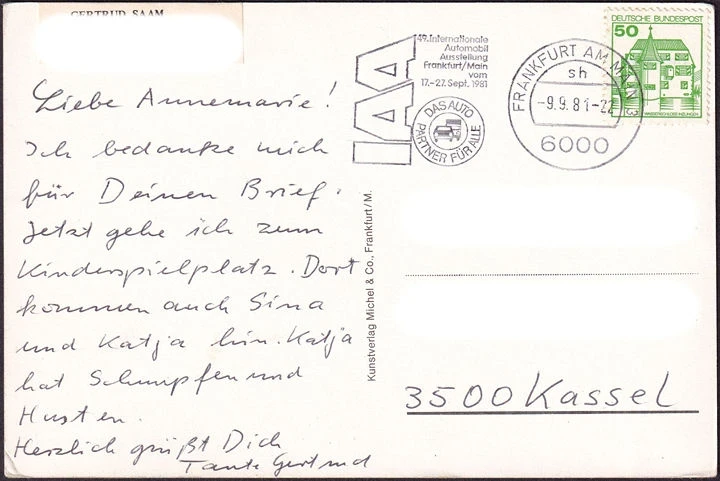 GERTRUD SAAM
Liebe Annemarie!
Ich bedanke mich
für Deinen Brief.
Jetzt gehe ich zum
Kinderspielplatz. Dort
kommen auch Sina
und Katja hin. Katja
hat Schnupfen und
Husten.
Herzlich grüßt Dich
Tante Gertrud
Kunstverlag Michel & Co., Frankfurt/M.
IAA
49. Internationale
Automobil
Ausstellung
Frankfurt/Main
vom
17.-27. Sept. 1981
DAS AUTO
PARTNER FÜR ALLE
FRANKFURT AM MAIN 3
sh
-9.9.81-22
6000
DEUTSCHE BUNDESPOST
50
WASSERSCHLOSS INZLINGEN
3500 Kassel